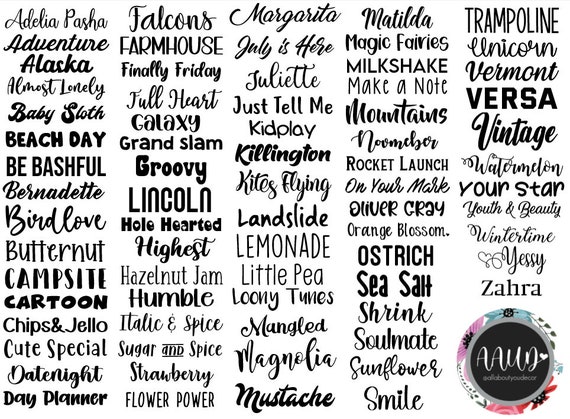 Adelia Pasha
Adventure
Alaska
Almost Lonely
Baby Sloth
BEACH DAY
BE BASHFUL
Bernadette
Birdlove
Butternut
CAMPSITE
CARTOON
Chips&Jello
Cute Special
Datenight
Day Planner
Falcons
FARMHOUSE
Finally Friday
Full Heart
Galaxy
Grand Slam
Groovy
LINCOLN
Hole Hearted
Highest
Hazelnut Jam
Humble
Italic & Spice
Sugar and Spice
Strawberry
FLOWER POWER
Margarita
July is Here
Juliette
Just Tell Me
Kidplay
Killington
Kites Flying
Landslide
LEMONADE
Little Pea
Loony Tunes
Mangled
Magnolia
Mustache
Matilda
Magic Fairies
MILKSHAKE
Make a Note
Mountains
Novmeber
ROCKET LAUNCH
On Your Mark
OLIVER GRAY
Orange Blossom.
OSTRICH
Sea Salt
Shrink
Soulmate
Sunflower
Smile
TRAMPOLINE
Unicorn
Vermont
VERSA
Vintage
Watermelon
Your Star
Youth & Beauty
Wintertime
Yessy
Zahra
AAUD
@allaboutyoudecor